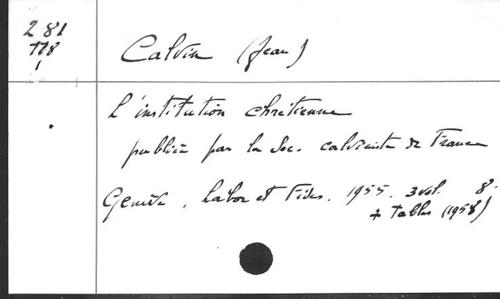 281
118
1
Calvin (Jean)
L'institution chrétienne
publiée par la Soc. calviniste de France
Genève, Labor et Fides. 1955. 3 vol. 8°
+ Tables (1958)